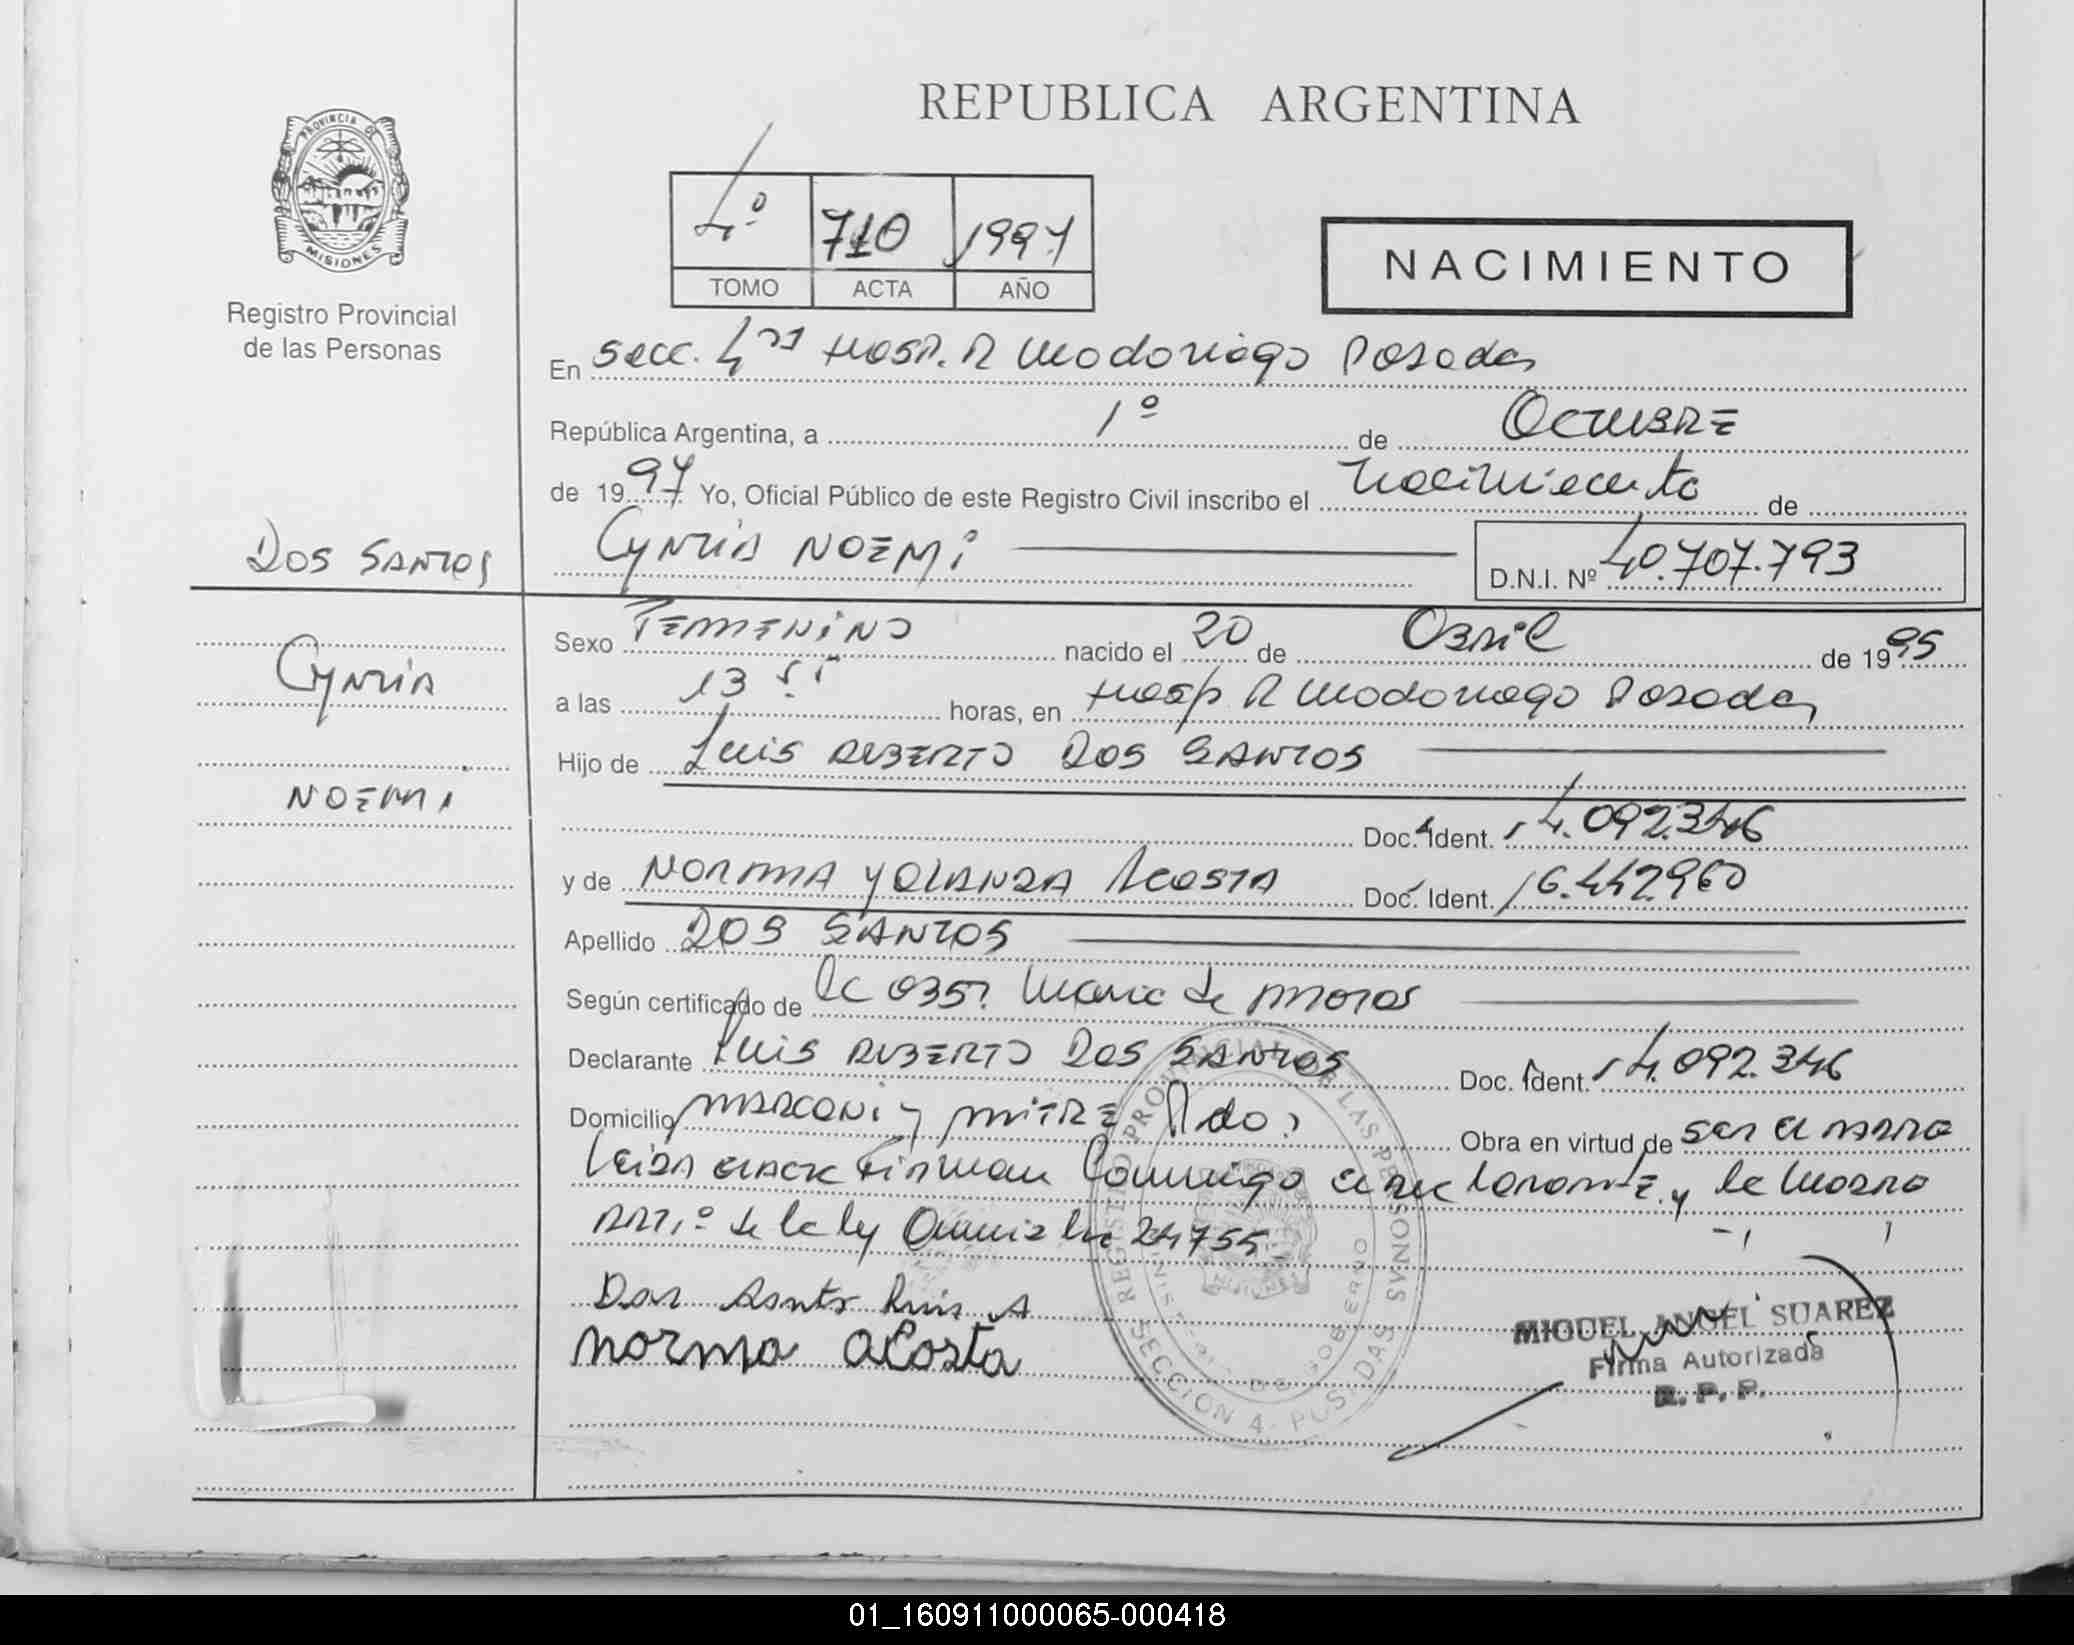 REPUBLICA ARGENTINA
PROVINCIA DE
MISIONES
Registro Provincial
de las Personas
4º 710 1997
TOMO ACTA AÑO
NACIMIENTO
En Secc. 4ta Hosp. R Madariaga Posadas
República Argentina, a 1º de Octubre
de 1997 Yo, Oficial Público de este Registro Civil inscribo el Nacimiento de
DOS SANTOS
Cyntia NOEMi
D.N.I. Nº 40.707.793
Cyntia
NOEMi
Sexo Femenino nacido el 20 de Abril de 1995
a las 13 55 horas, en Hosp R Madariaga Posadas
Hijo de Luis Alberto DOS SANTOS
Doc. Ident. 14.092.346
y de NORMA YOLANDA Acosta Doc. Ident. 16.442.960
Apellido DOS SANTOS
Según certificado de la Obst. Maria de
Declarante Luis Alberto Dos SANTOS Doc. Ident. 14.092.346
Domicilio Marconi y Mitre Pdas Obra en virtud de ser el padre
Leida acta firman Conmigo el declarante y la Madre
Art. 1º de la ley 24755
Dos Santos Luis A
norma acosta
REGISTRO PROVINCIAL DE LAS PERSONAS
MINISTERIO DE GOBIERNO
SECCION 4 POSADAS
MIGUEL ANGEL SUAREZ
Firma Autorizada
R. P. P.
01_160911000065-000418